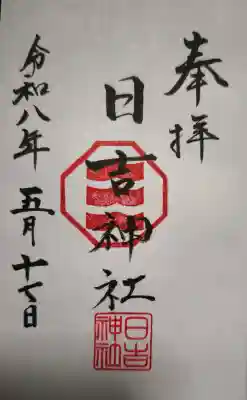 奉拝
日吉神社
令和八年五月十七日
日吉
神社